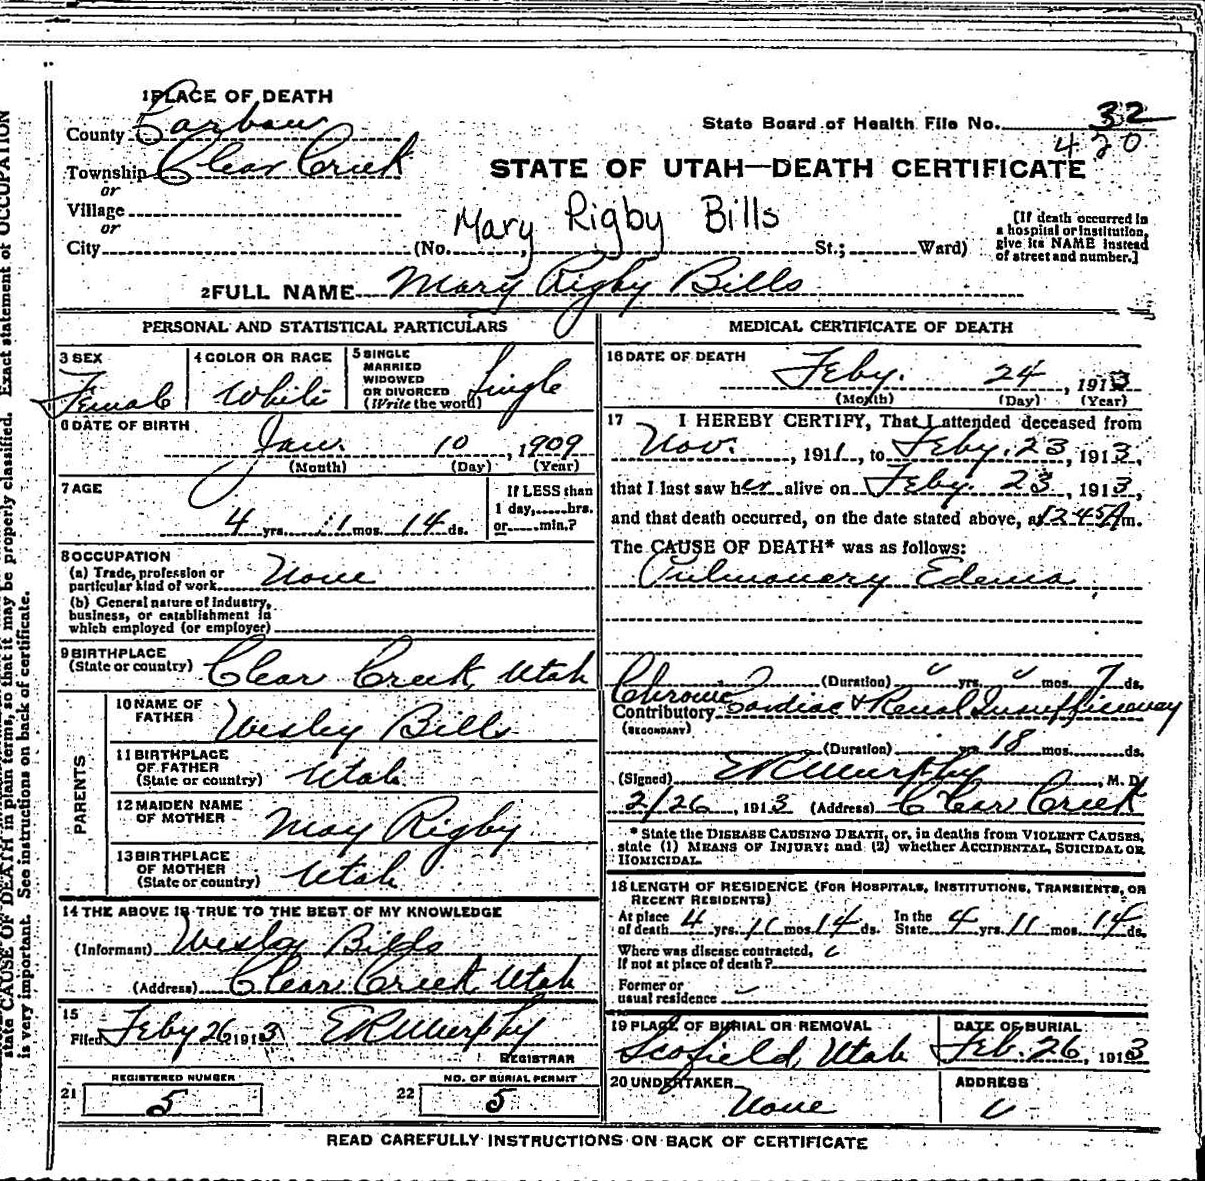 1 PLACE OF DEATH
County Carbon
State Board of Health File No. 32
420
Township Clear Creek
STATE OF UTAH—DEATH CERTIFICATE
or
Village
or
Mary Rigby Bills
City (No. St.; Ward)
[If death occurred in a hospital or institution, give its NAME instead of street and number.]
2 FULL NAME Mary Rigby Bills
PERSONAL AND STATISTICAL PARTICULARS
3 SEX
Female
4 COLOR OR RACE
White
5 SINGLE
MARRIED
WIDOWED
OR DIVORCED
(Write the word)
Single
6 DATE OF BIRTH
Jany. 10, 1909
(Month) (Day) (Year)
7 AGE
4 yrs. 1 mos. 14 ds.
If LESS than
1 day, hrs.
or min.?
8 OCCUPATION
(a) Trade, profession or
particular kind of work None
(b) General nature of industry,
business, or establishment in
which employed (or employer)
9 BIRTHPLACE
(State or country) Clear Creek, Utah
PARENTS
10 NAME OF
FATHER Wesley Bills
11 BIRTHPLACE
OF FATHER
(State or country) Utah
12 MAIDEN NAME
OF MOTHER May Rigby
13 BIRTHPLACE
OF MOTHER
(State or country) Utah
14 THE ABOVE IS TRUE TO THE BEST OF MY KNOWLEDGE
(Informant) Wesley Bills
(Address) Clear Creek Utah
15
Filed Feby 26 1913 E R Murphy
REGISTRAR
21 REGISTERED NUMBER
5
22 NO. OF BURIAL PERMIT
5
MEDICAL CERTIFICATE OF DEATH
16 DATE OF DEATH
Feby. 24, 1913
(Month) (Day) (Year)
17 I HEREBY CERTIFY, That I attended deceased from
Nov., 1911, to Feby. 23, 1913,
that I last saw her alive on Feby. 23, 1913,
and that death occurred, on the date stated above, at 12 45 A m.
The CAUSE OF DEATH* was as follows:
Pulmonary Edema
(Duration) yrs. mos. 7 ds.
Chronic
Contributory Cardiac & Renal Insufficiency
(SECONDARY)
(Duration) yrs. 18 mos. ds.
(Signed) E R Murphy, M. D.
2/26, 1913 (Address) Clear Creek
* State the DISEASE CAUSING DEATH, or, in deaths from VIOLENT CAUSES,
state (1) MEANS OF INJURY; and (2) whether ACCIDENTAL, SUICIDAL OR
HOMICIDAL.
18 LENGTH OF RESIDENCE (FOR HOSPITALS, INSTITUTIONS, TRANSIENTS, OR
RECENT RESIDENTS)
At place
of death 4 yrs. 11 mos. 14 ds.
In the
State 4 yrs. 11 mos. 14 ds.
Where was disease contracted,
If not at place of death?
Former or
usual residence
19 PLACE OF BURIAL OR REMOVAL
Scofield, Utah
DATE OF BURIAL
Feb. 26, 1913
20 UNDERTAKER
None
ADDRESS
READ CAREFULLY INSTRUCTIONS ON BACK OF CERTIFICATE
state CAUSE OF DEATH in plain terms, so that it may be properly classified. Exact statement of OCCUPATION
is very important. See instructions on back of certificate.